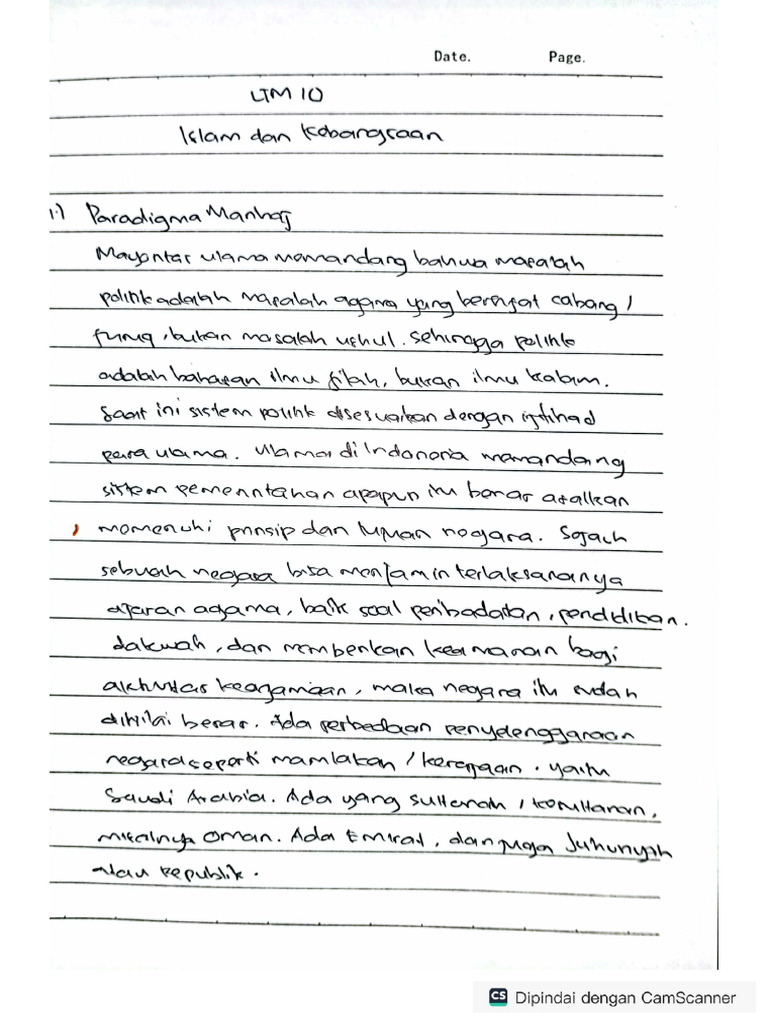 Date. Page.
LTM 10
Islam dan Kebangsaan
1.) Paradigma Manhaj
Mayoritas ulama memandang bahwa masalah
politik adalah masalah agama yang bersifat cabang /
furuq, bukan masalah ushul. Sehingga politik
adalah bahasan ilmu fikah, bukan ilmu kalam.
Saat ini sistem politik disesuaikan dengan ijtihad
para ulama. Ulama di Indonesia memandang
sistem pemerintahan apapun itu benar asalkan
memenuhi prinsip dan tujuan negara. Sejauh
sebuah negara bisa menjamin terlaksananya
ajaran agama, baik soal peribadatan, pendidikan.
dakwah, dan memberikan keamanan bagi
aktivitas keagamaan, maka negara itu sudah
dinilai benar. Ada perbedaan penyelenggaraan
negara seperti mamlakah / kerajaan. yaitu
Saudi Arabia. Ada yang sultanah / kesultanan,
misalnya Oman. Ada Emirat, dan juga Juhuriyah
atau republik.
CS Dipindai dengan CamScanner